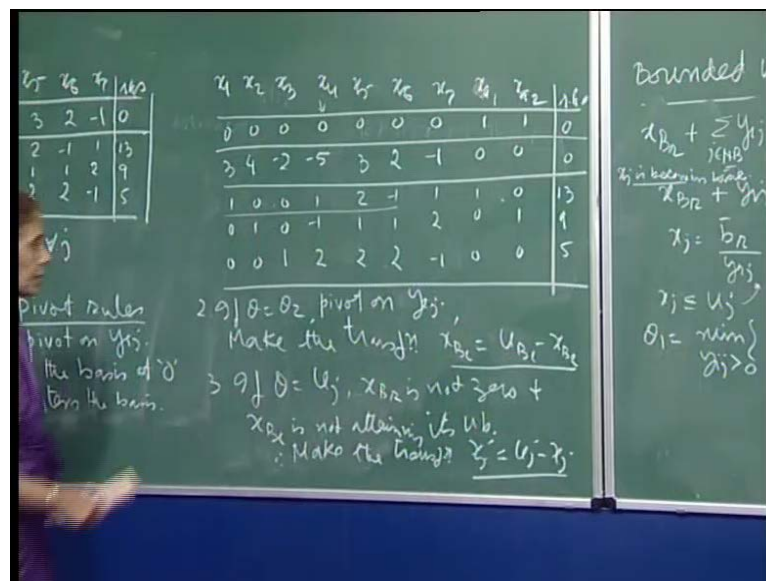 x5 x6 x7 rhs
3 2 -1 0
2 -1 1 13
1 1 2 9
2 2 -1 5
∀j
pivot rules
pivot on yrj.
the basis at '0'
the basis.
x1 x2 x3 x4 x5 x6 x7 xa1 xa2 r.h.s
0 0 0 0 0 0 0 1 1 0
3 4 -2 -5 3 2 -1 0 0 0
1 0 0 1 2 -1 1 1 0 13
0 1 0 -1 1 1 2 0 1 9
0 0 1 2 2 2 -1 0 0 5
2 If θ = θ2, pivot on yej.
Make the transfn xBe = uBe - xBe
3 If θ = uj, xBr is not zero +
xBe is not attaining its ub.
∴ Make the transfn xj' = uj - xj.
Bounded
xBr + Σ yrj
j∈NB
xj is becoming basic
xBr + yrj
xj = b̄r / yrj
xj ≤ uj
θ1 = min {
yij>0